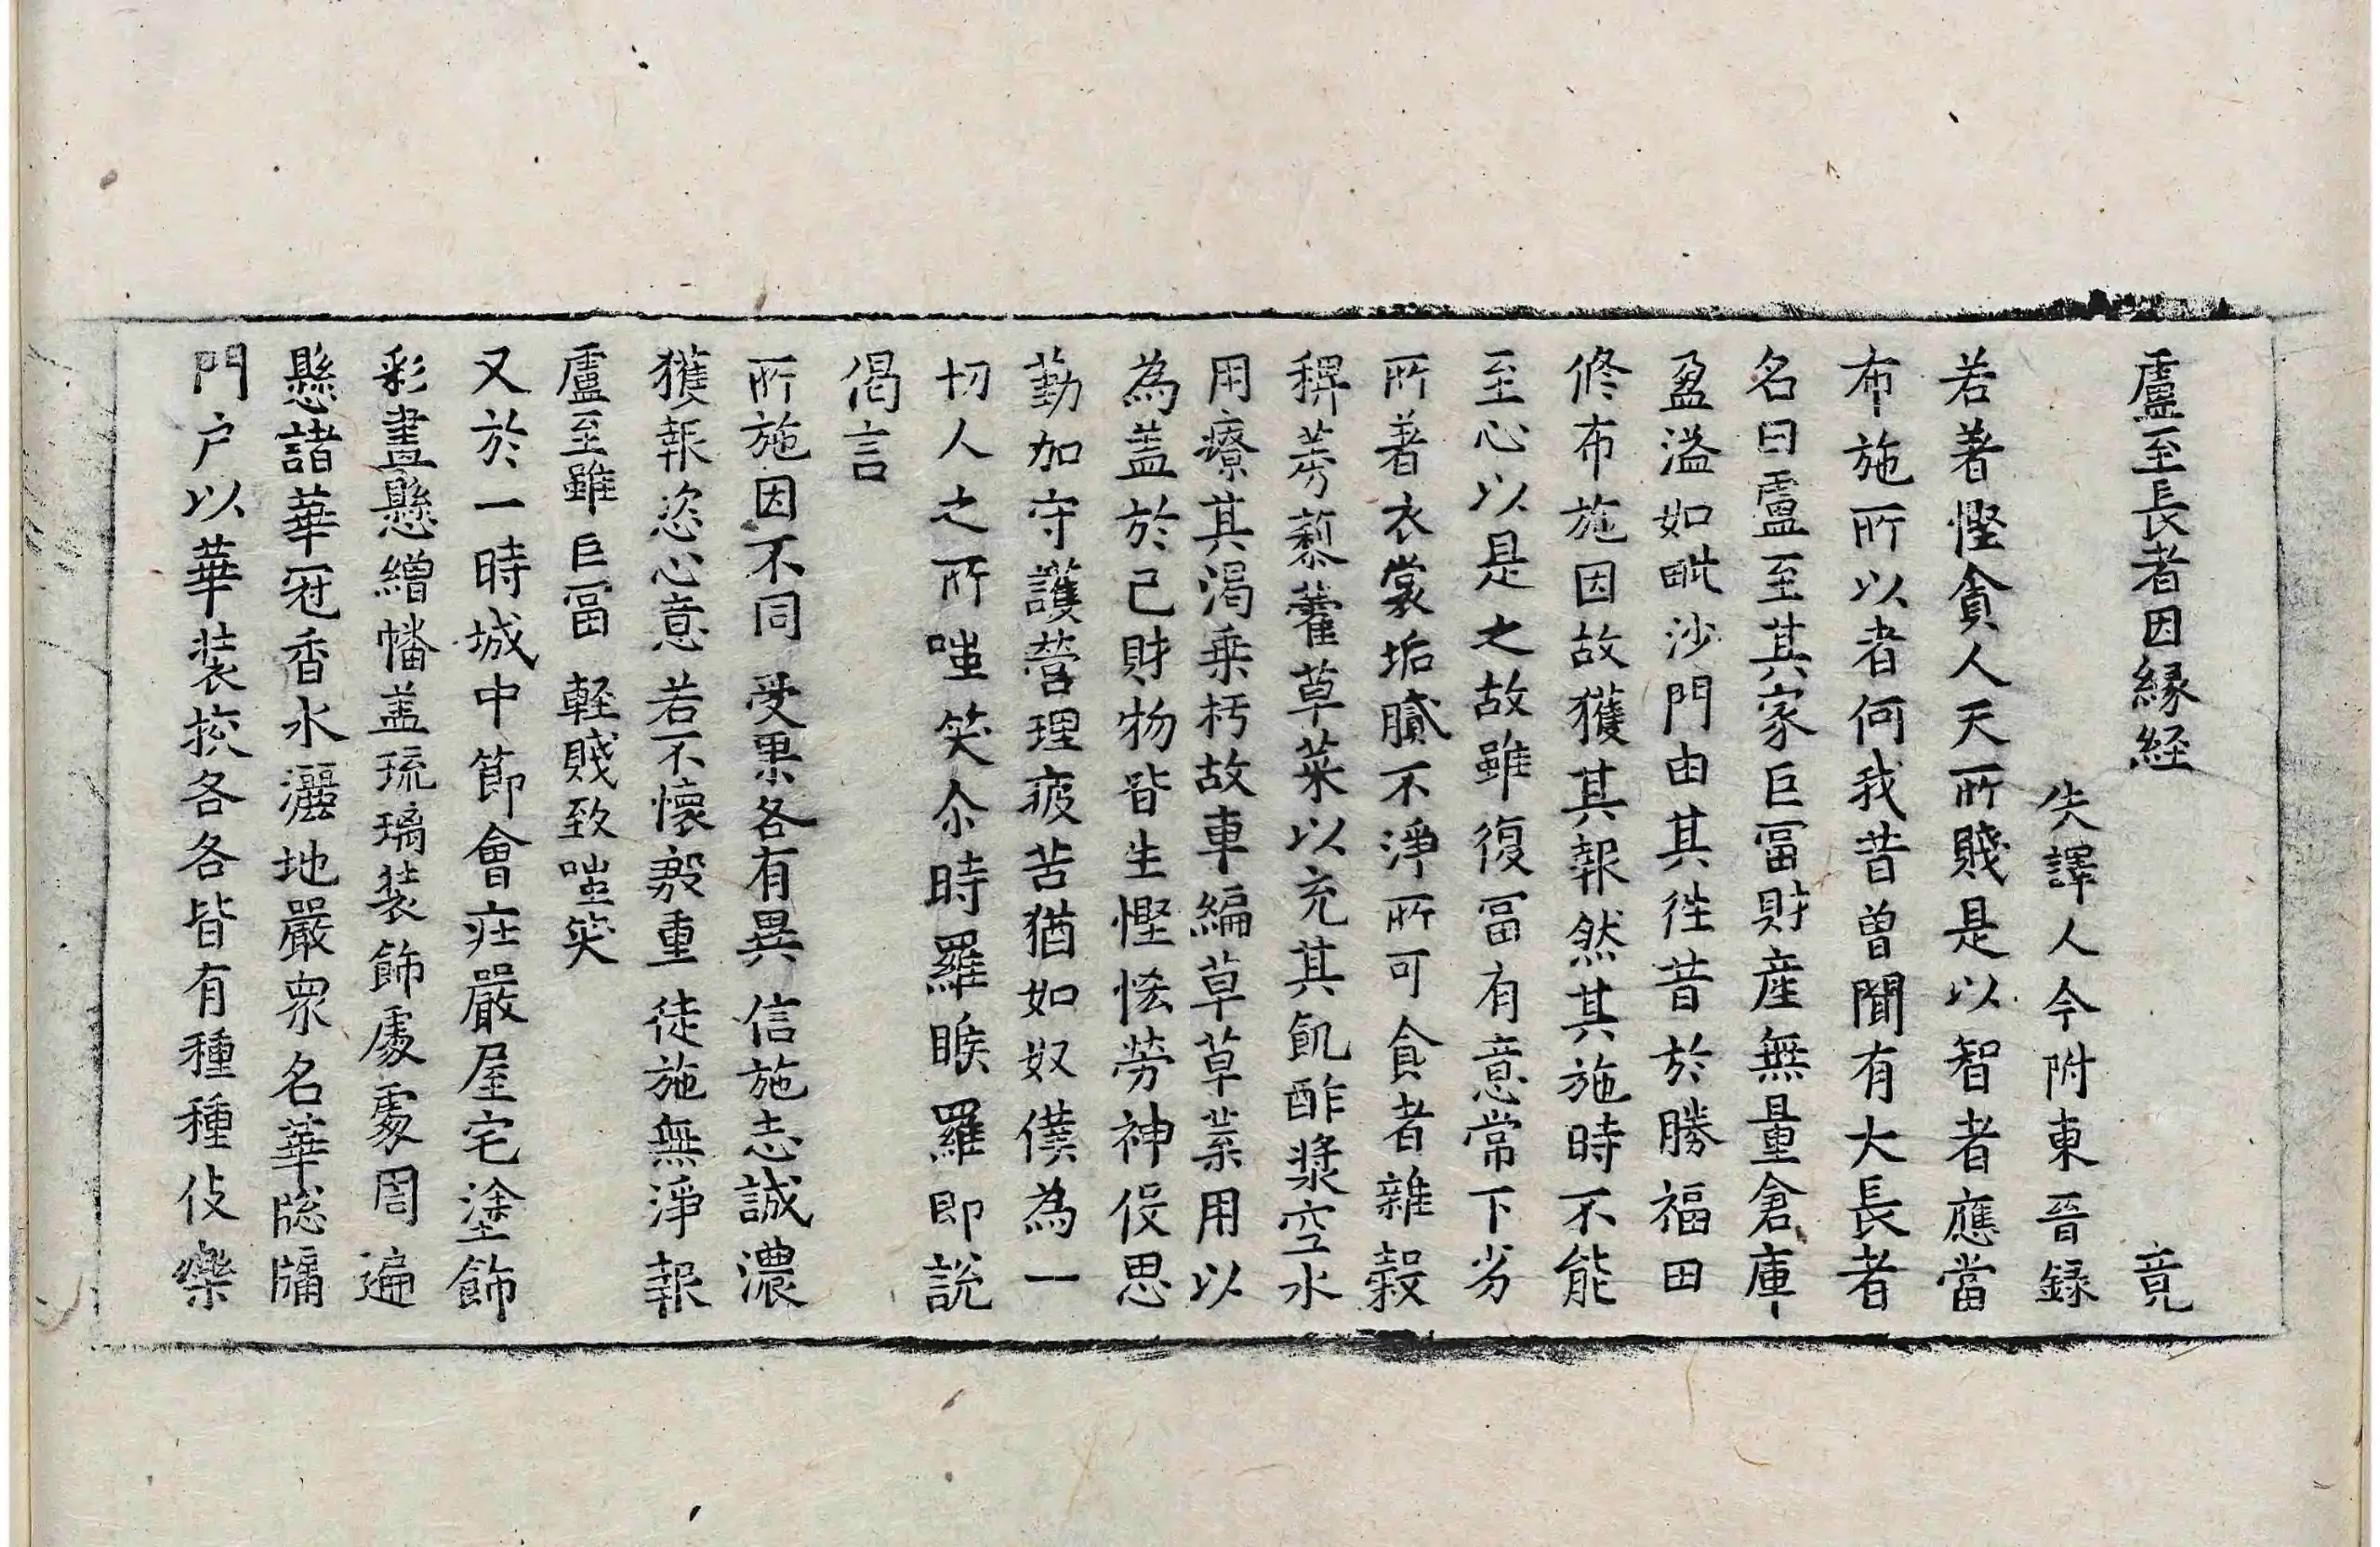 盧至長者因縁経 竟
失譯人今附東晉録
若著慳貪人天所賤是以智者應當
布施所以者何我昔曽聞有大長者
名曰盧至其家巨冨財産無量倉庫
盈溢如毗沙門由其往昔於勝福田
修布施因故獲其報然其施時不能
至心以是之故雖復冨有意常下劣
所著衣裳垢膩不淨所可食者雜穀
稗莠藜藿草菜以充其飢酢漿空水
用療其渴乗朽故車編草草葉用以
為盖於己財物皆生慳悋勞神役思
勤加守護營理疲苦猶如奴僕為一
切人之所嗤笑尒時羅睺羅即說
偈言
所施因不同 受果各有異 信施志誠濃
獲報恣心意 若不懷殷重 徒施無淨報
盧至雖巨冨 軽賤致嗤笑
又於一時城中節會莊嚴屋宅塗飾
彩畫懸繒幡盖琉璃装飾處處周遍
懸諸華冠香水灑地嚴衆名華牎牖
門户以華装挍各各皆有種種伎樂